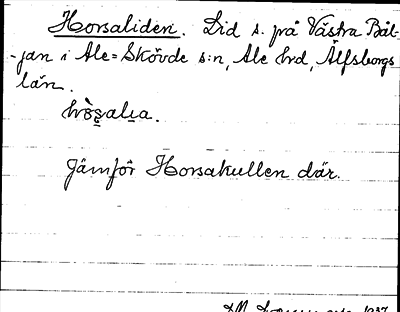 Horsaliden. Lid s. på Västra Böl-
-jan i Ale=Skövde s:n, Ale hrd, Älfsborgs
län.
Jämför Horsakullen där.
1937